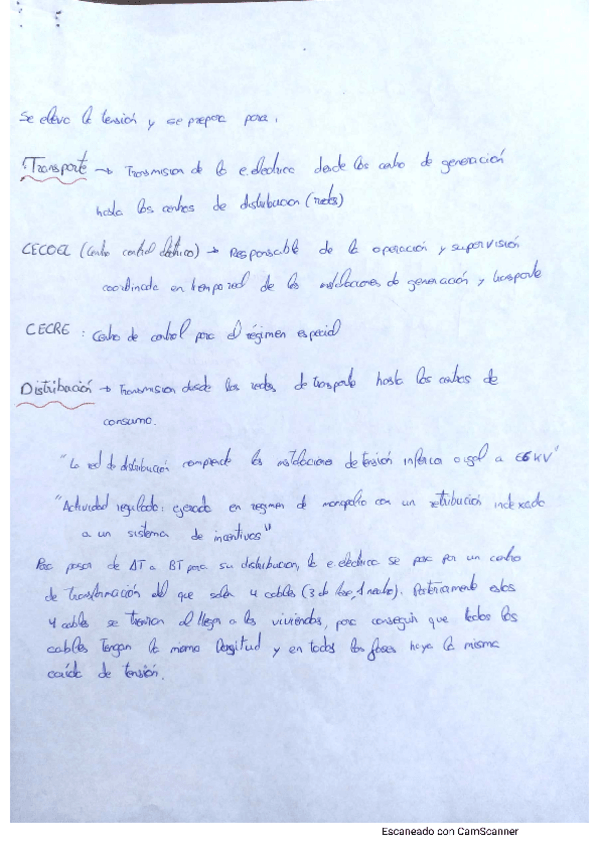 Se eleva la tensión y se prepara para:
Transporte → Transmision de la e. electrica desde los centro de generación
hasta los centros de distribucion (redes)
CECOEL (Centro control eléctrico) → Responsable de la operación y supervisión
coordinada en tiempo real de las instalaciones de generación y transporte
CECRE : Centro de control para el régimen especial
Distribución → Transmision desde las redes de transporte hasta los centros de
consumo.
"La red de distribución comprende las instalaciones de tensión inferior o igual a 66 kV"
"Actividad regulada: ejercida en regimen de monopolio con un retribución indexada
a un sistema de incentivos"
Para pasar de AT a BT para su distribucion, la e. electrica se pasa por un centro
de transformación del que salen 4 cables (3 de fase, 1 neutro). Posteriormente estos
4 cables se al llegar a las viviendas, para conseguir que todos los
cables tengan la misma longitud y en todas las fases haya la misma
caída de tensión.
Escaneado con CamScanner